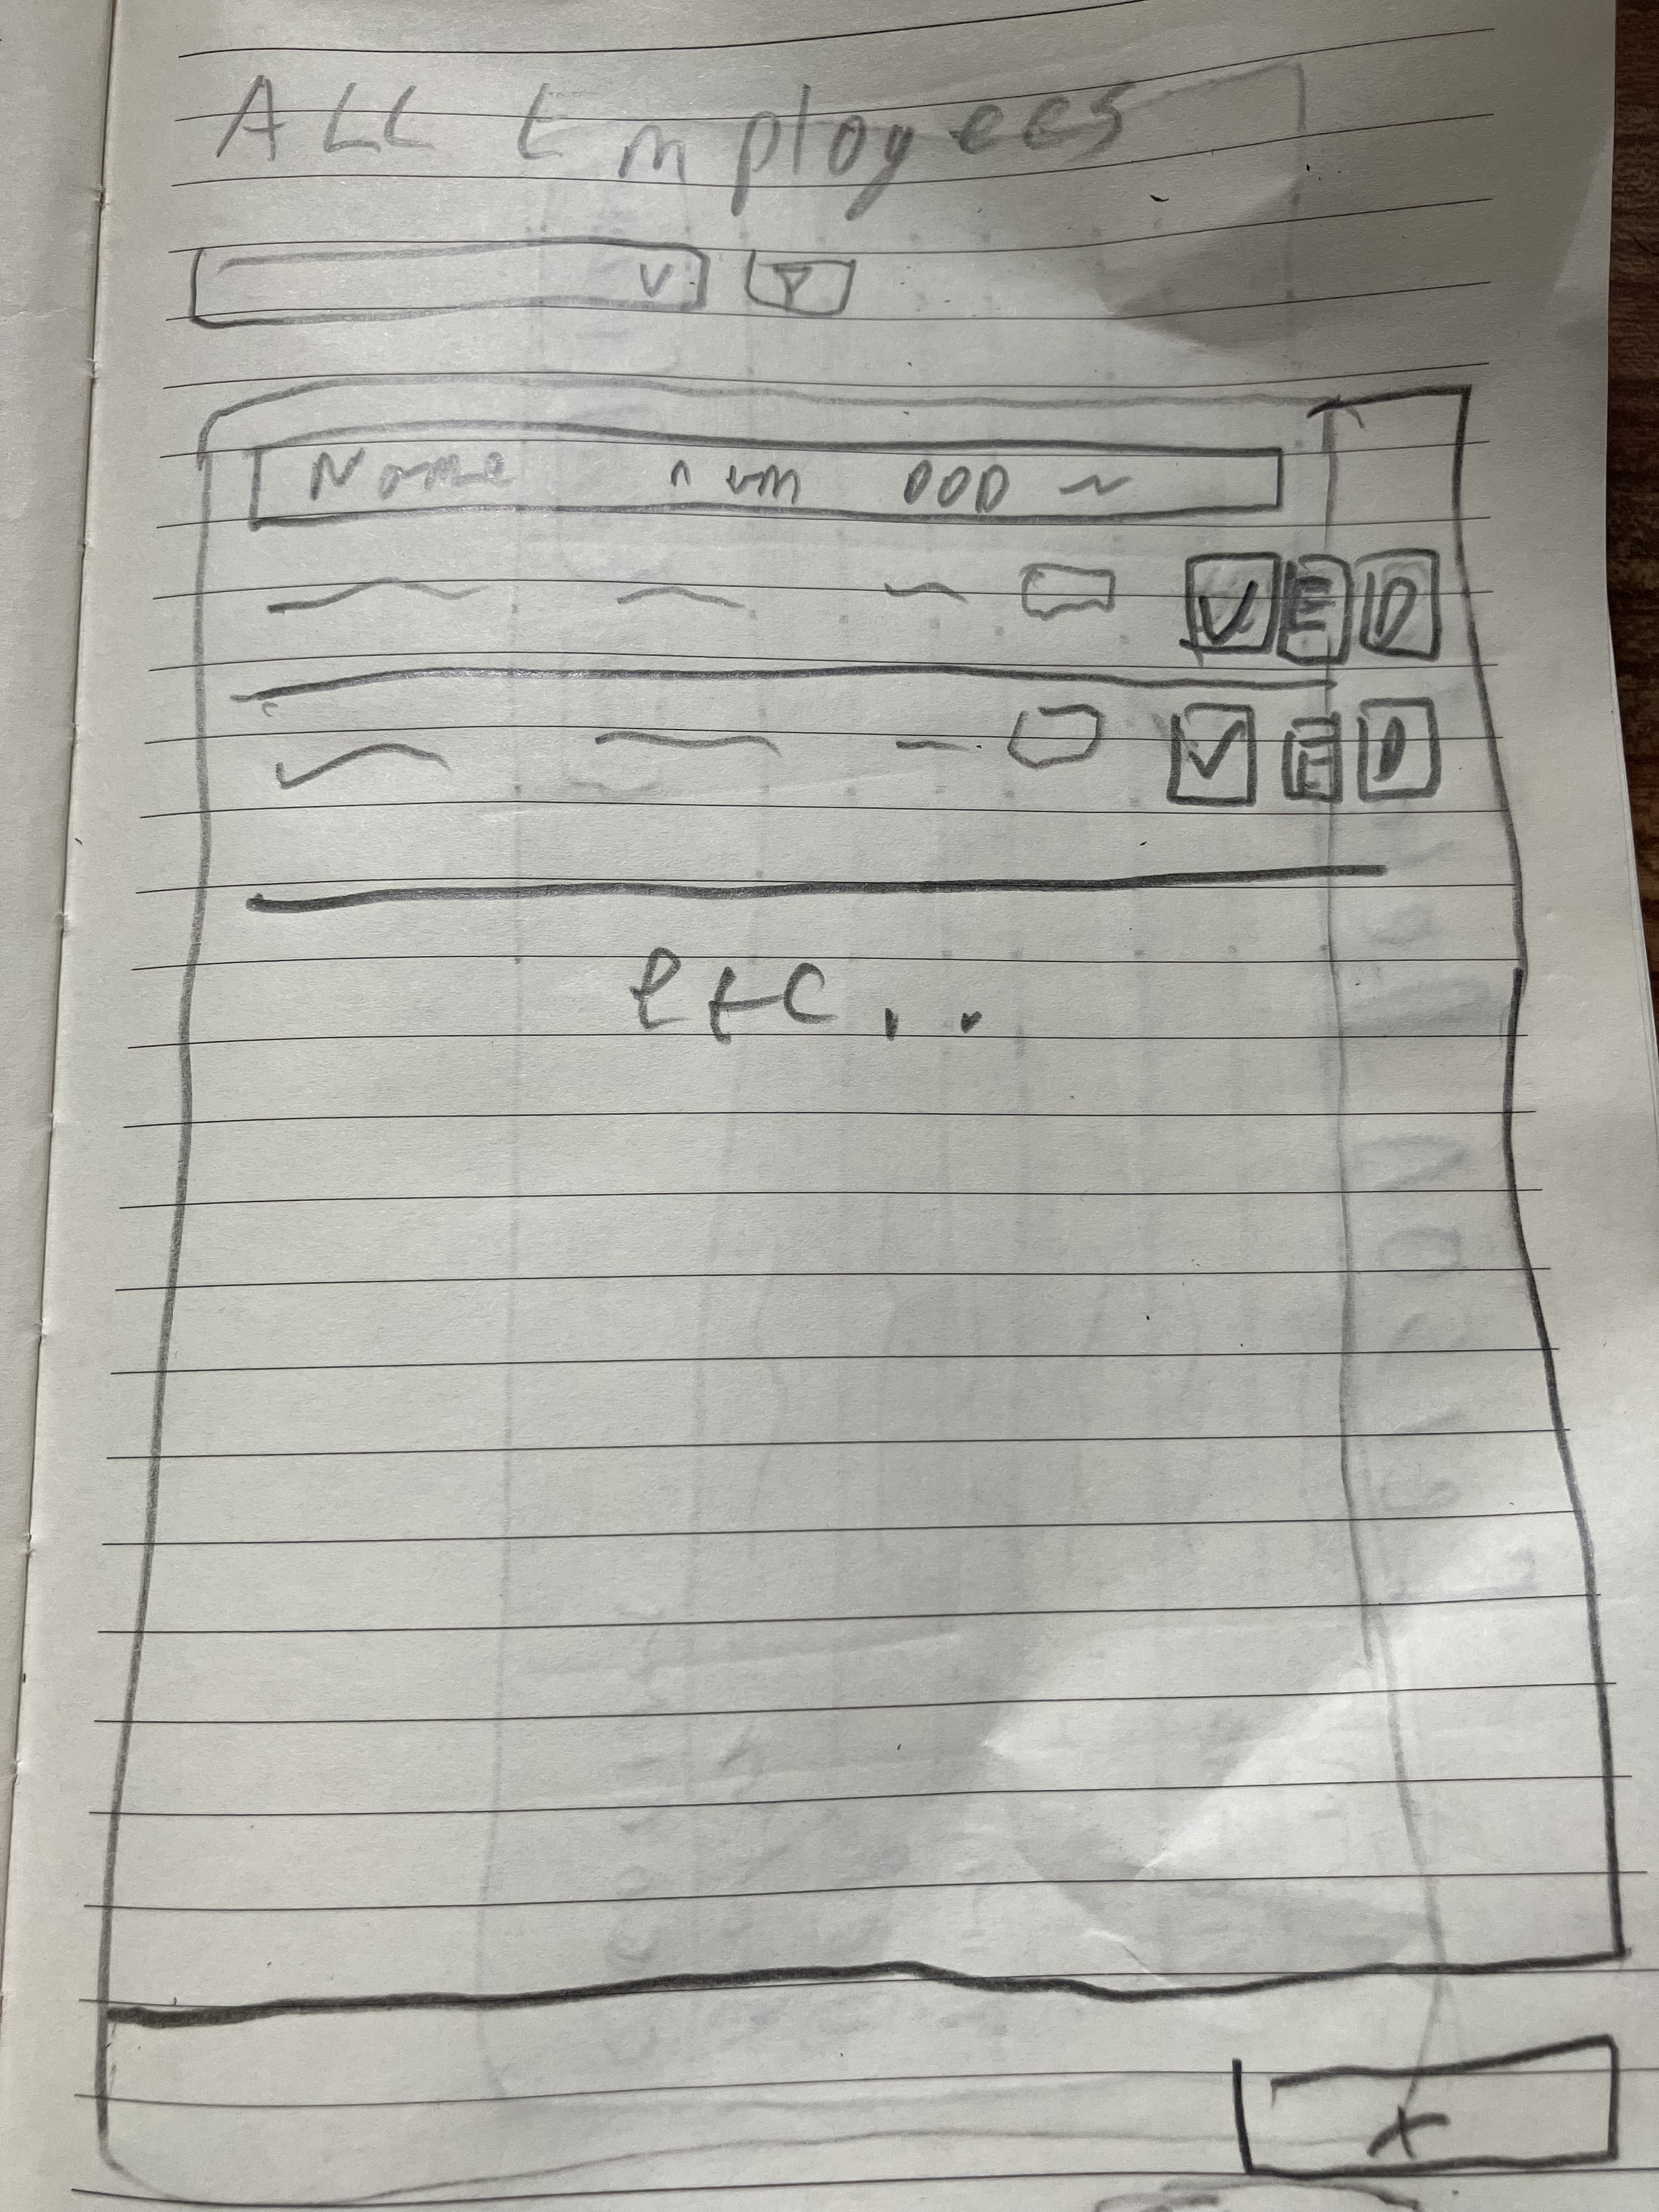 ALL Employees
V
Name num DOD
V E D
V E D
etc..
+